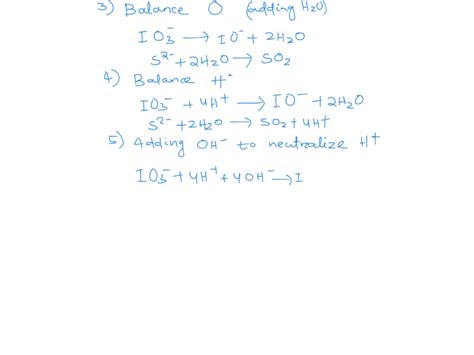 3) Balance O (adding H₂O)
IO₃⁻ → IO⁻ + 2H₂O
S²⁻ + 2H₂O → SO₂
4) Balance H⁺
IO₃⁻ + 4H⁺ → IO⁻ + 2H₂O
S²⁻ + 2H₂O → SO₂ + 4H⁺
5) Adding OH⁻ to neutralize H⁺
IO₃⁻ + 4H⁺ + 4OH⁻ → I